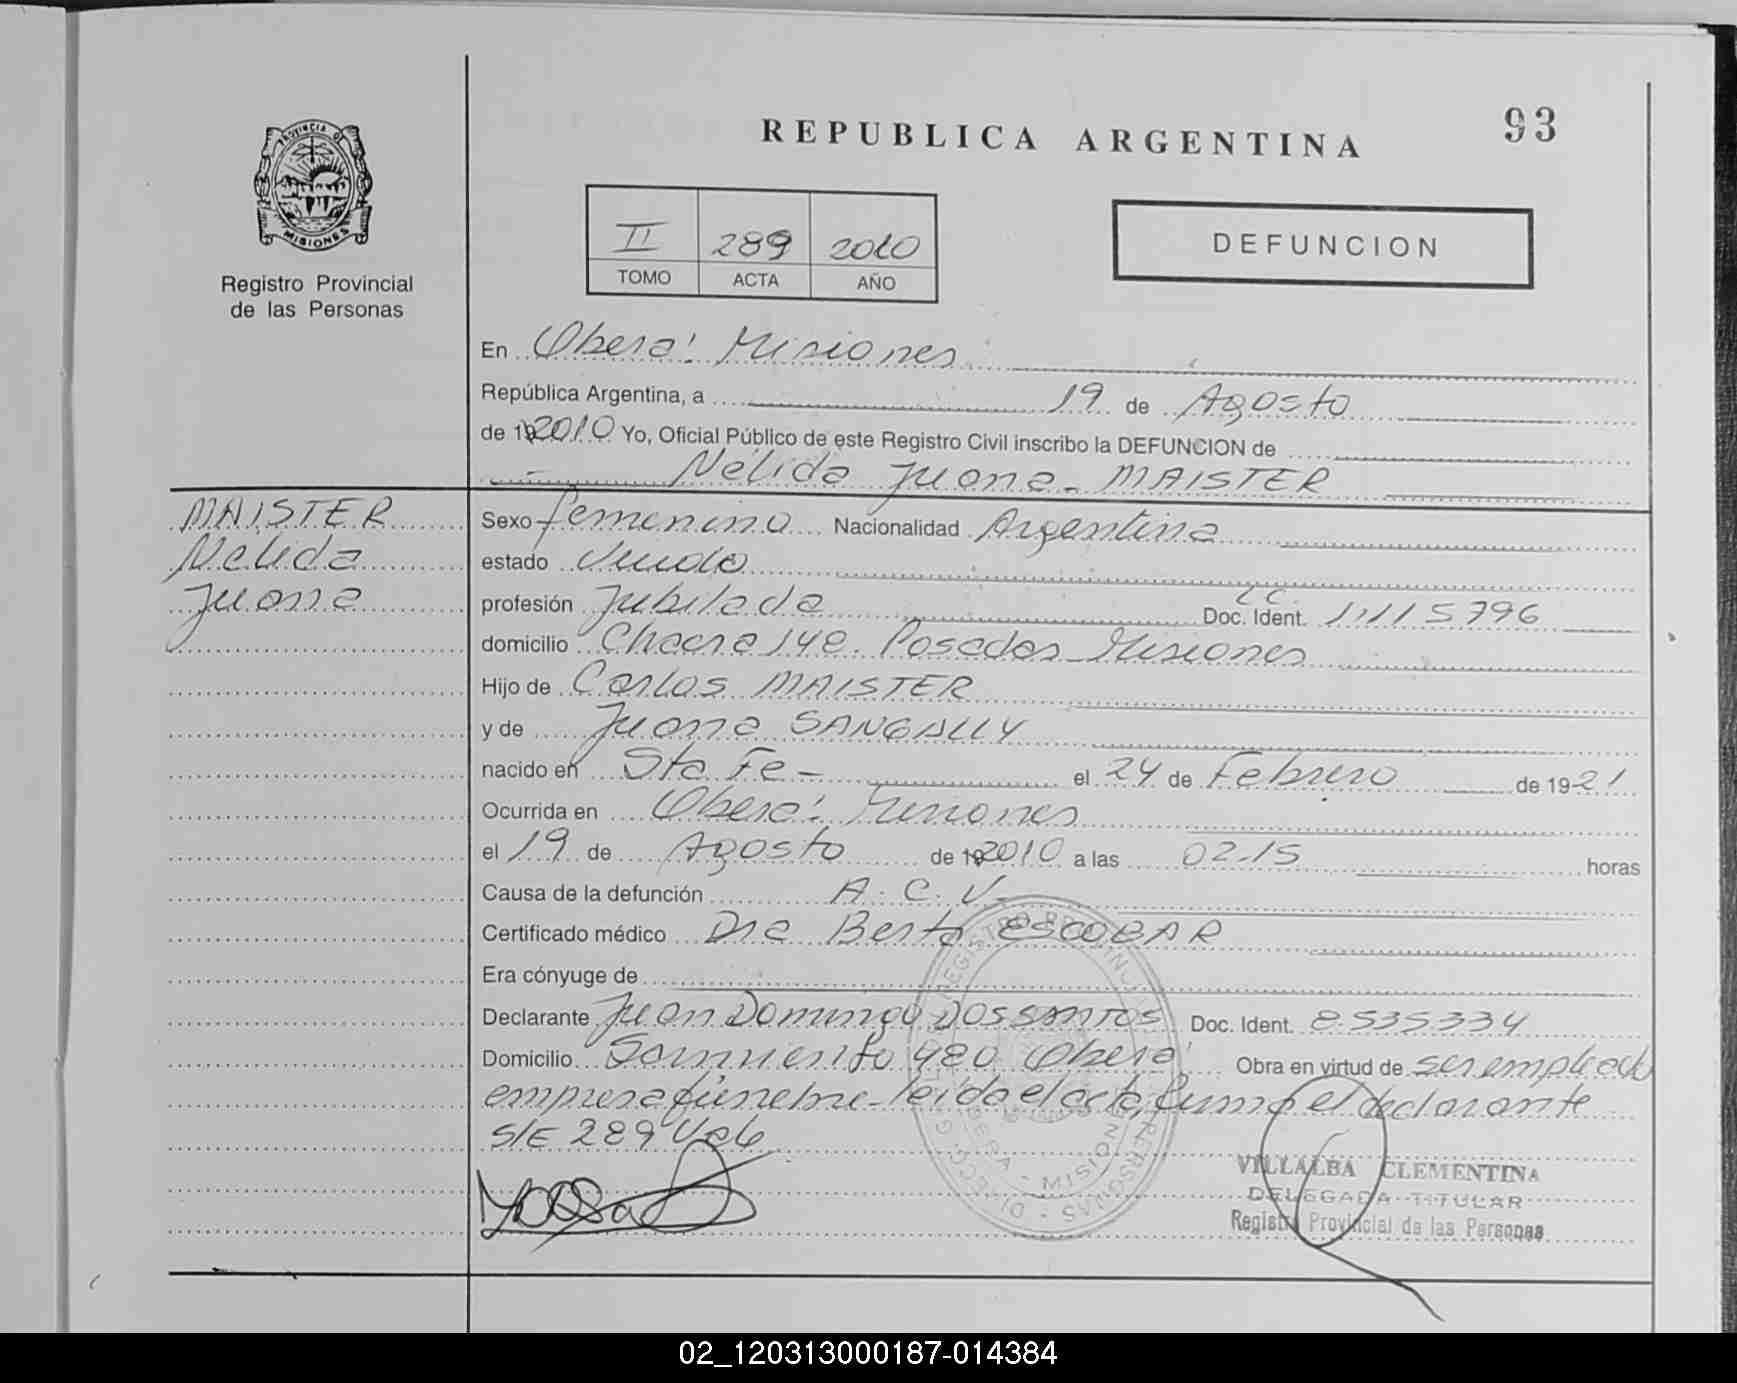 93
REPUBLICA ARGENTINA
PROVINCIA DE
MISIONES
Registro Provincial
de las Personas
II 289 2010
TOMO ACTA AÑO
DEFUNCION
En Oberá: Misiones
República Argentina, a 19 de Agosto
de 192010 Yo, Oficial Público de este Registro Civil inscribo la DEFUNCION de
Nélida Juana - MAISTER
MAISTER
Nelida
Juana
Sexo femenino Nacionalidad Argentina
estado Viuda
profesión Jubilada Doc. Ident. LC 1.115796
domicilio Chacra 148. Posadas Misiones
Hijo de Carlos MAISTER
y de Juana SANGALLY
nacido en Sta Fe - el 24 de Febrero de 1921
Ocurrida en Oberá: Misiones
el 19 de Agosto de 192010 a las 02.15 horas
Causa de la defunción A. C. V.
Certificado médico Dra Berta ESCOBAR
Era cónyuge de
Declarante Juan Domingo DOSSANTOS Doc. Ident. 8.535334
Domicilio Sarmiento 480 Oberá Obra en virtud de ser empleado
empresa fúnebre - leída el acta, firma el declarante
S/E 289 Vale
VILLALBA CLEMENTINA
DELEGADA TITULAR
Registro Provincial de las Personas
02_120313000187-014384